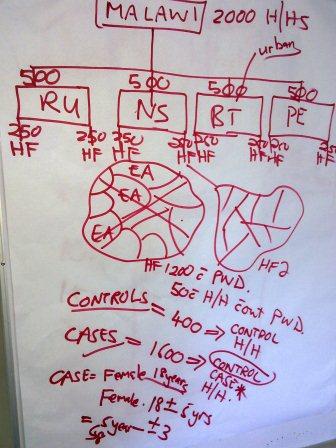 MALAWI 2000 H/HS
urban
500 500 500 500
RU NS BT PE
250 HF 250 HF 250 HF 250 HF 250 HF 250 HF 250 HF 250 HF
EA
EA
EA
HF 1200 c̄ PWD. HF2
50 c̄ H/H c̄out PWD.
CONTROLS = 400 ⇒ CONTROL H/H
CASES = 1600 ⇒ CONTROL CASE* H/H.
CASE = Female 18 years
Female. 18 ± 5 yrs
= 5 year ± 3